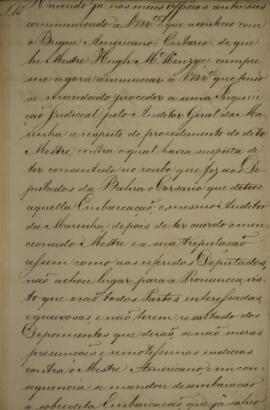 Havendo já nos meus Officios anteriores
communicado a V M.ce o que aconteceo com
o Brigue Americano Contario de que
he Mestre Hugh M.c Kenzye cumpre
me agora annunciar a V M.ce que pondo
se mandado proceder a uma Inquiri
ção Judicial pelo Auditor Geral da Ma
rinha a respeito do procedimento do dito
Mestre, contra o qual havia suspeita de
ter consentido no roubo que fez aos De
putados da Bahia o Corsario que deteve
aquella Embarcação, o mesmo Auditor
da Marinha depois de ter ouvido o men
cionado Mestre e a sua tripulação
assim como aos referidos Deputados,
não achou lugar para a Pronuncia, vis
to que erão todos Partes interessadas,
e não terem resultado dos
Depoimentos que derão, se não meras
presumções e remotissimos indicios
contra o Mestre Americano e em con
sequencia se mandou desembaraçar
a sobredita Embarcação que já sahio